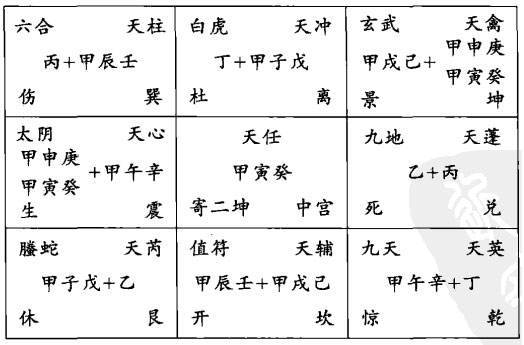 六合 天柱
丙+甲辰壬
伤 巽
白虎 天冲
丁+甲子戊
杜 离
玄武 天禽
甲戌己+甲申庚
甲寅癸
景 坤
太阴 天心
甲申庚
甲寅癸+甲午辛
生 震
天任
甲寅癸
寄二坤 中宫
九地 天蓬
乙+丙
死 兑
螣蛇 天芮
甲子戊+乙
休 艮
值符 天辅
甲辰壬+甲戌己
开 坎
九天 天英
甲午辛+丁
惊 乾